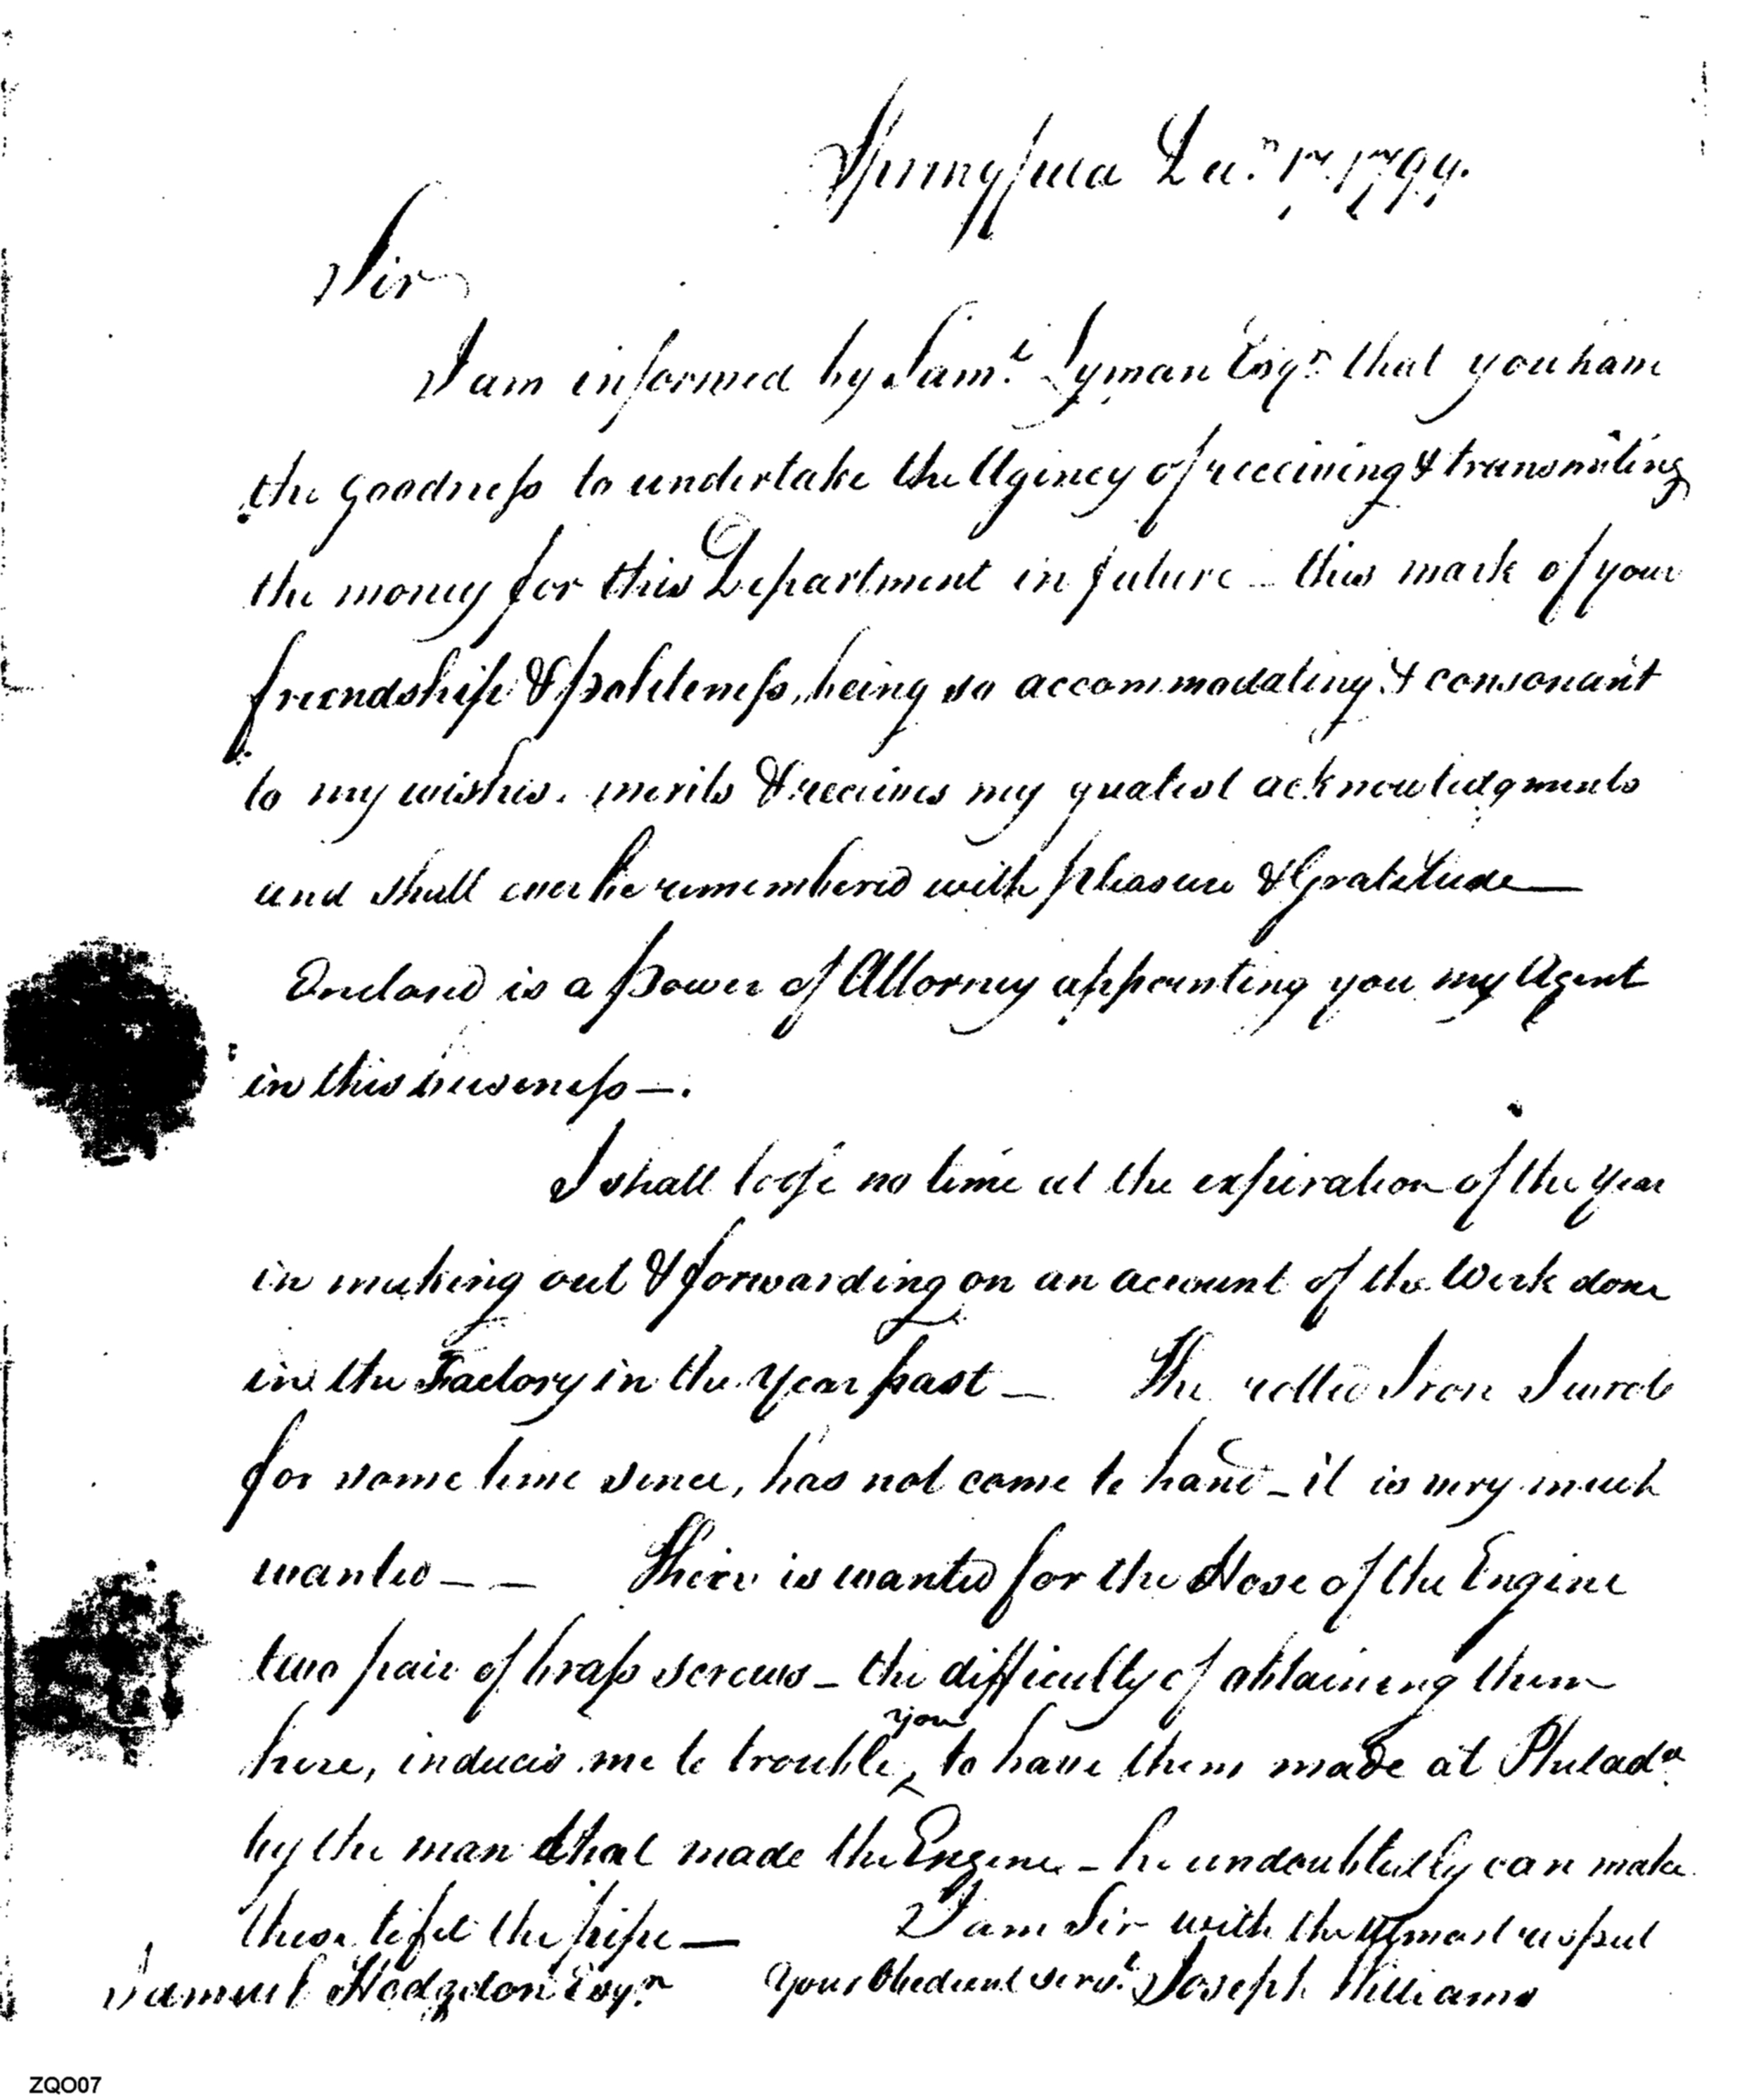 Springfield Decr 17. 1799.
Sir
I am informed by Saml Lyman Esqr that you have
the goodness to undertake the Agency of receiving & transmiting
the money for this Department in future – this mark of your
friendship & politeness, being so accommodating & consonant
to my wishes, merits & receives my greatest acknowledgments
and shall ever be remembered with pleasure & Gratitude —
Enclosed is a power of Attorney appointing you my Agent
in this buseness —.
I shall loose no time at the expiration of the Year
in making out & forwarding on an account of the Work done
in the Factory in the Year past — The rolled Iron I wrote
for some time since, has not come to hand – it is very much
wanted – – There is wanted for the Hose of the Engine
two pair of brass screws – the difficulty of obtaining them
here, induces me to trouble you to have them made at Philada
by the man that made the Engine – he undoubtedly can make
these to fit the pipe — I am Sir with the utmost respect
Samuel Hodgdon Esqr Your Obedient servt Joseph Williams
ZQO07